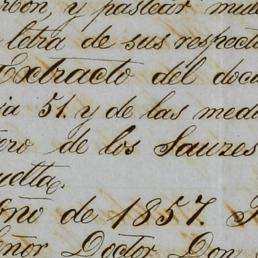 bon, y pastear mu
letra de sus respect
Extracto del docu
ja 51. y de las med
ero de los Sauzes
uelta.
Año de 1857.
eñor Doctor Don